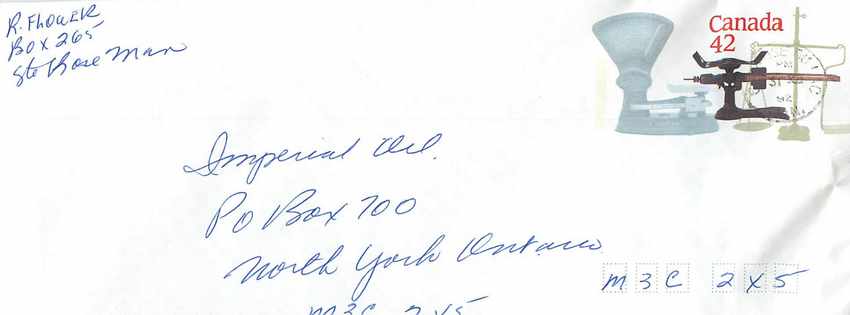 R. Flower
Box 265
Ste Rose Man
Canada
42
Imperial Oil.
PO Box 700
North York Ontario
M3C 2X5
M3C 2X5